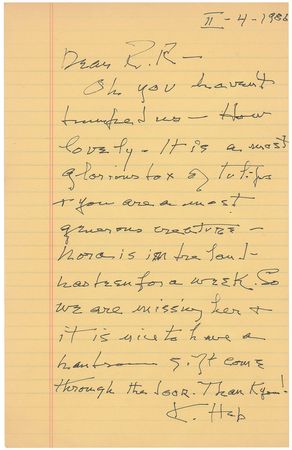 II - 4 - 1986
Dear R.R —
Oh you haven't
trumped us — How
lovely - It is a most
glorious box of tulips
+ you are a most
generous creature —
Nora is in the
has been for a week. So
we are missing her +
it is nice to have a
handsome gift come
through the door. Thank you!
K. Hep